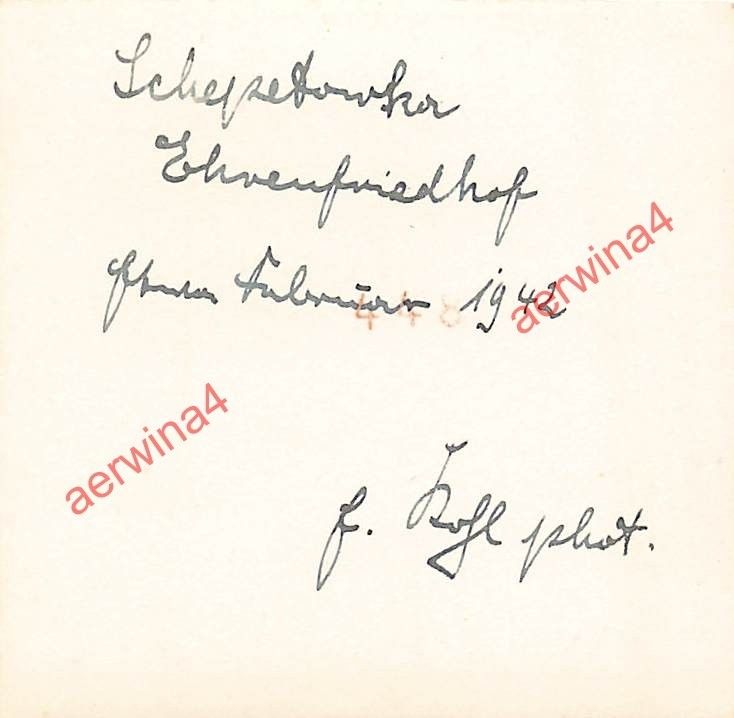 Schepetowka
Ehrenfriedhof
Februar 1942
aerwina4
448
aerwina4
Kohl phot.